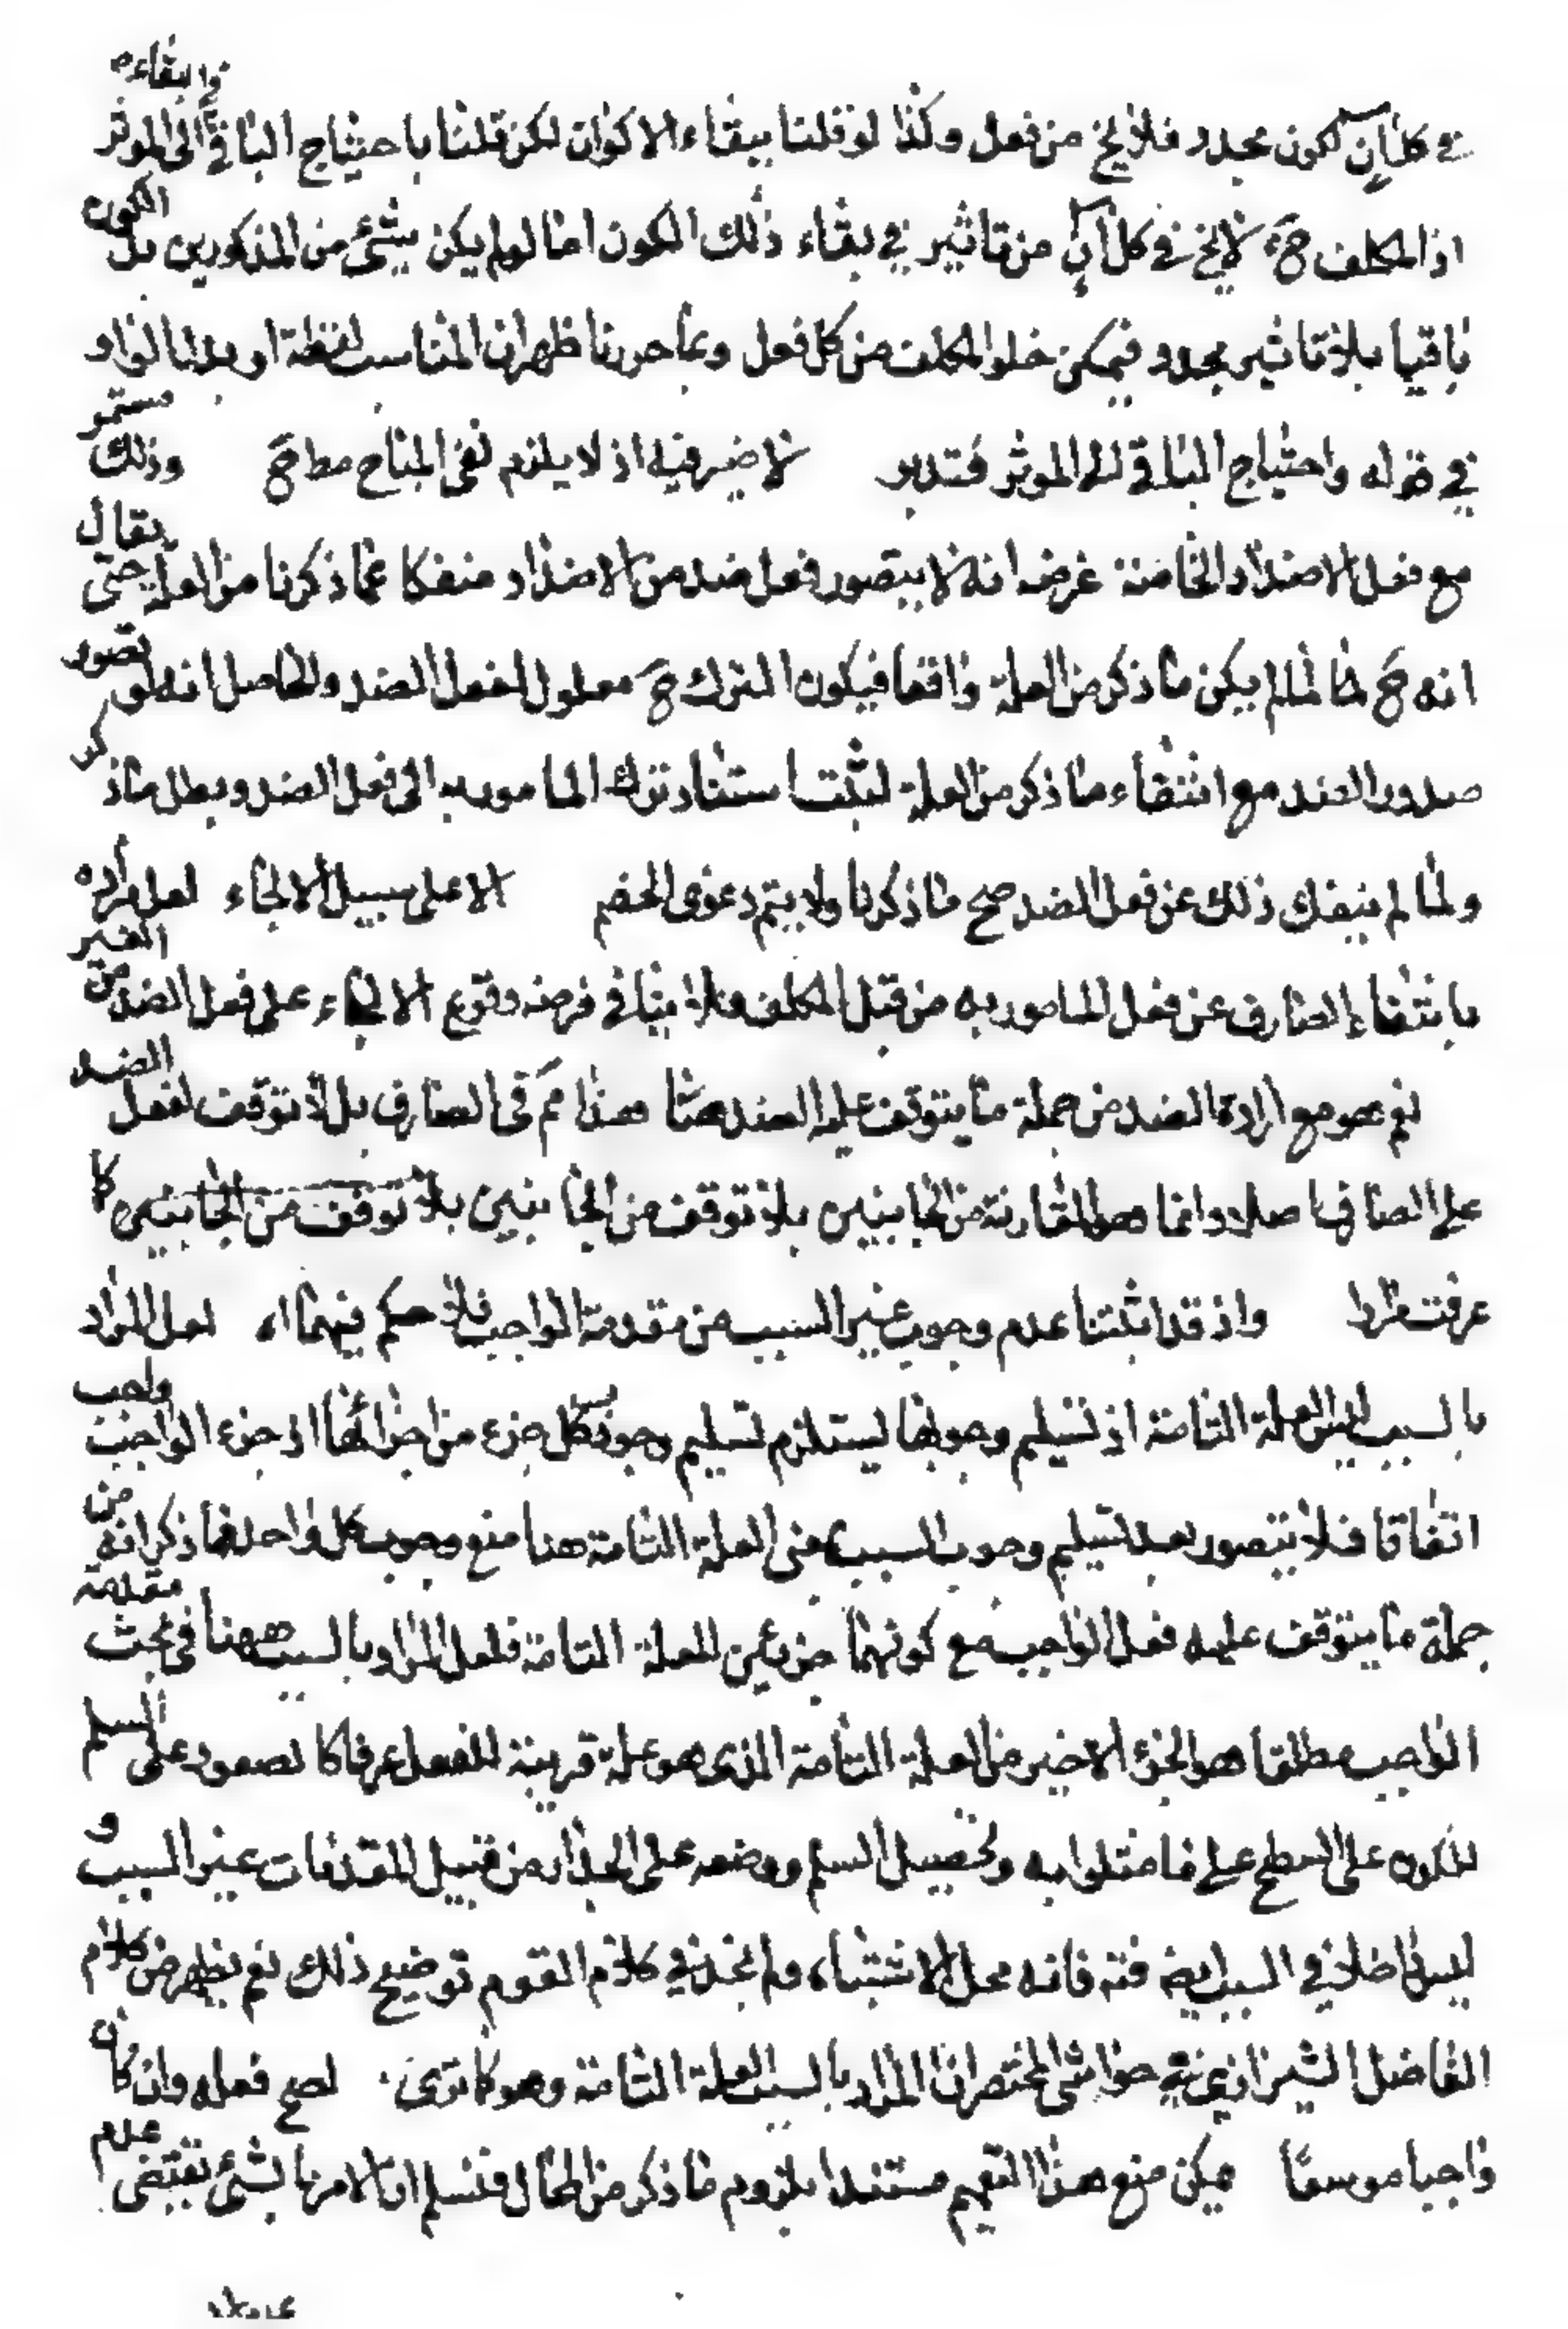 في كل آن كون مجدد فلا يخ من فعل وكذا لو قلنا ببقاء الاكوان لكن قلنا باحتياج الباقي في البقاء الى الموثر
اذ المكلف ح لا يخ في كل آن من تاثير في بقاء ذلك الكون اما لو لم يكن شئ من المذكورين بل الكون
باقيا بلا تاثير مجدد فيمكن خلو المكلف من كل فعل وبما حررنا ظهر ان المناسب لفظة او بدل الواو
في قوله واحتياج الباقي الى الموثر فتدبر لا ضير فيه اذ لا يلزم نفى المباح مط ح وذلك مستمر
مع فعل الاضداد الخاصة غرضه انه لا يتصور فعل ضد من الاضداد منفكا عما ذكرنا من العلة حتى يقال
انه ح لما لم يكن ما ذكر من العلة واقعا فيكون الترك ح معلول لفعل الضد والحاصل انه لو تصور
صدور الضد مع انتفاء ما ذكر من العلة لثبت استناد ترك المامور به الى فعل الضد وبطل ما ذكر
ولما لم ينفك ذلك عن فعل الضد صح ما ذكرنا ولا يتم دعوى الخصم الا على سبيل الالجاء لعل مراده
بانتفاء الصارف عن فعل المامور به من قبل المكلف فلا ينافي فرضه وقوع الالجاء على فعل الضد من الغير
نعم هو مع ارادة الضد من جملة ما يتوقف عليه الضد هذا مم في الصارف بل لا توقف لفعل الضد
على الصارف اصلا وانما هو المقارنة من الجانبين بلا توقف من الجانبين بلا توقف من الجانبين كا
عرفت مرارا واذ قد اثبتنا عدم وجوب غير السبب من مقدمة الواجب فلا حكم فيهما اه لعل المراد
بالسبب ليس العلة التامة اذ تسليم وجوبها يستلزم تسليم وجوب كل جزء من اجزائها اذ جزء الواجب واجب
اتفاقا فلا يتصور بعد تسليم وجوب السبب بمعنى العلة التامة هنا منع وجوب كل واحد مما ذكر انه من
جملة ما يتوقف عليه فعل الواجب مع كونهما جزءين للعلة التامة فلعل المراد بالسبب ههنا في بحث مقدمة
الواجب مطلقا هو الجزء الاخير من العلة التامة الذى هو علة قريبة للفعل عرفا كا لصعود على السلم
للكون على السطح على ما مثلوا به وتحصيل السلم ووضعه على الجدار من قبيل المقدمات غير السبب و
ليس داخلا في السبب فتد فانه محل الاشتباه ولم نجد في كلام القوم توضيح ذلك نعم يظهر من كلام
الفاضل الشيرازي في حواشى المختصر ان المراد بالسبب العلة التامة وهو كا ترى لصح فعله وان كان
واجبا موسعا يمكن منع هذا التعميم مستندا بلزوم ما ذكر من المحال فنسلم ان الامر بالشئ يقتضى عدم